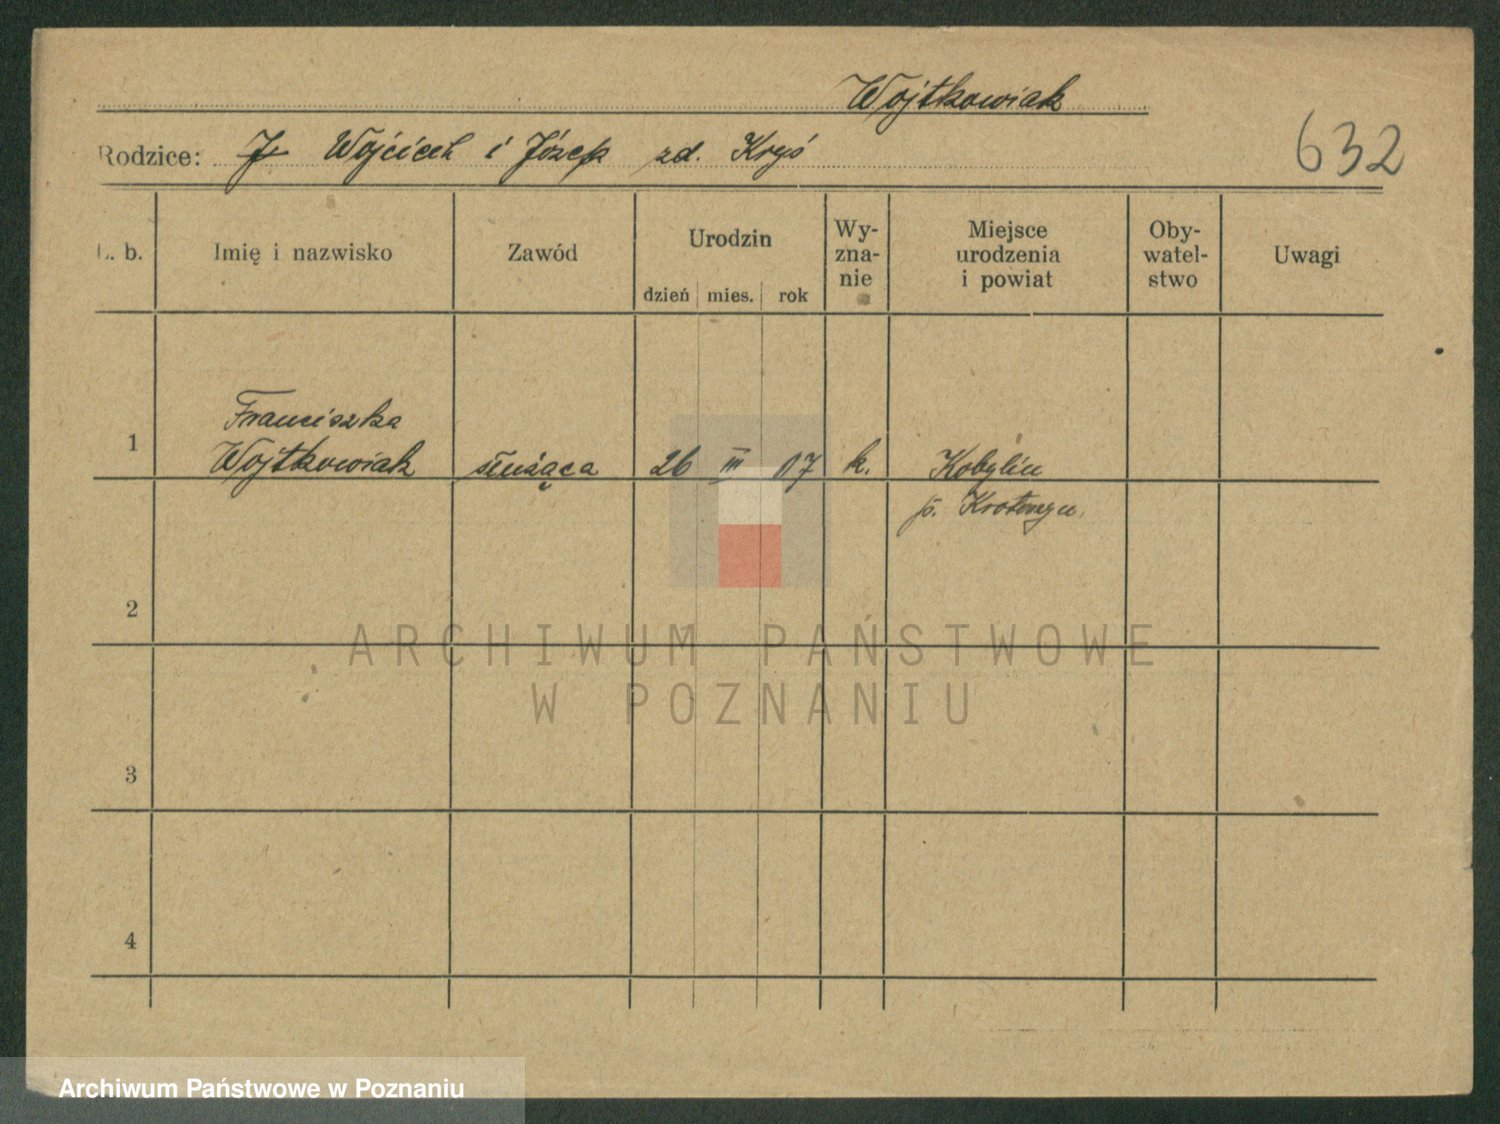 Wojtkowiak
Rodzice: J Wojciech i Józefa zd. Kryś
632
L. b.
Imię i nazwisko
Zawód
Urodzin
dzień mies. rok
Wy-
zna-
nie
Miejsce
urodzenia
i powiat
Oby-
watel-
stwo
Uwagi
1
Franciszka
Wojtkowiak
służąca
26 III 07
k.
Kobylin
p. Krotoszyn
2
3
4
ARCHIWUM PAŃSTWOWE
W POZNANIU
Archiwum Państwowe w Poznaniu